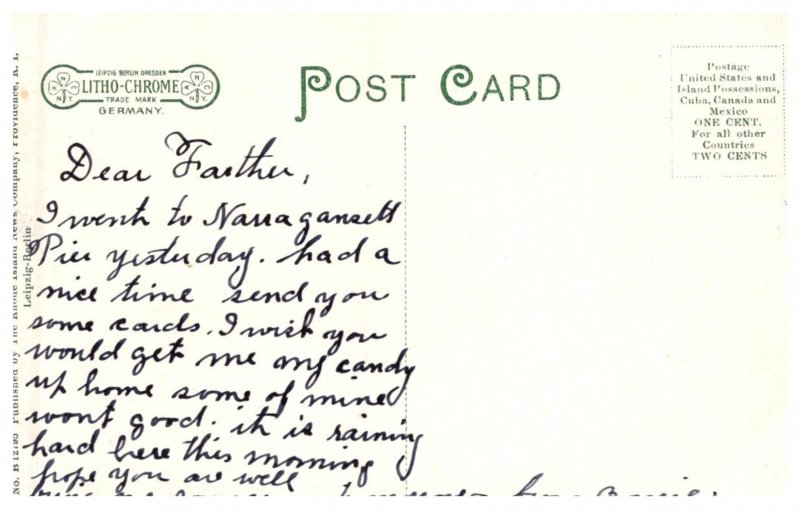 LEIPZIG BERLIN DRESDEN
LITHO-CHROME
TRADE MARK
GERMANY.
POST CARD
Postage
United States and
Island Possessions,
Cuba, Canada and
Mexico
ONE CENT.
For all other
Countries
TWO CENTS
No. B12795 Published by The Rhode Island News Company, Providence, R. I.
Leipzig-Berlin
Dear Farther,
I went to Narragansett
Pier yesterday. had a
nice time send you
some cards. I wish you
would get me my candy
up home some of mine
wont good. it is raining
hard here this morning
hope you are well